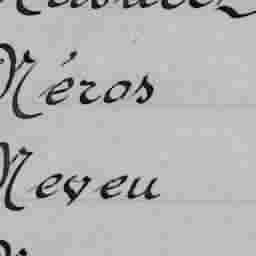 Néros
Neveu